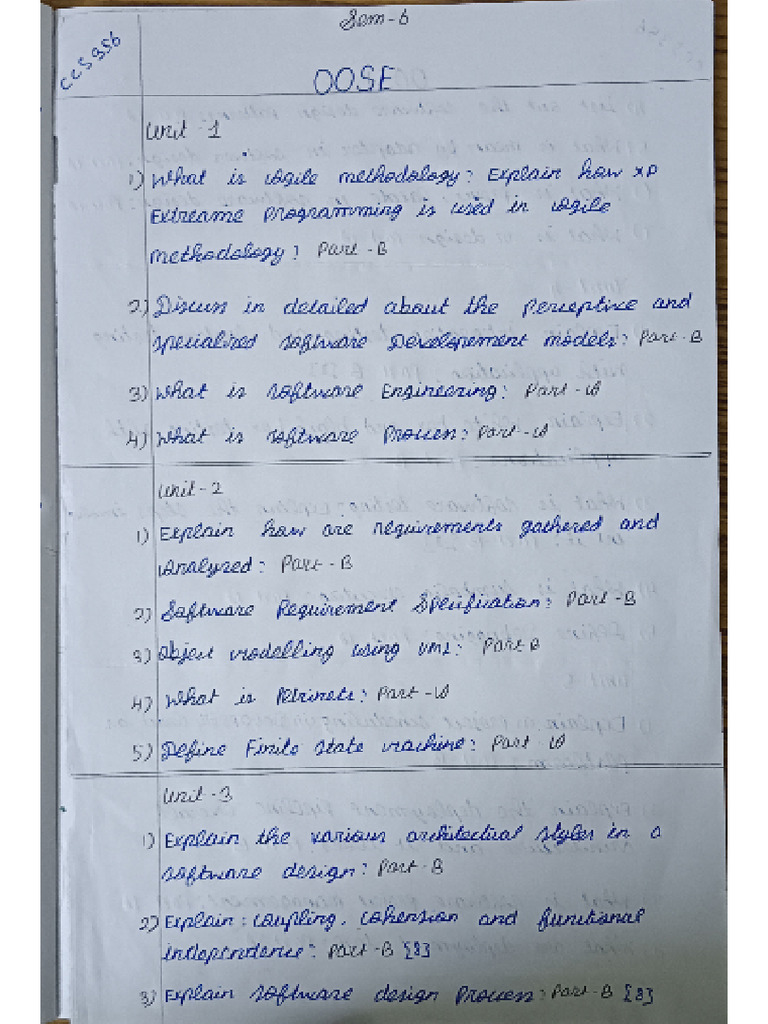 Sem-6
CCS356
OOSE
Unit - 1
1) What is agile methodology? Explain how XP
Extreame programming is used in agile
methodology? Part-B
2) Discuss in detailed about the perceptive and
specialized software Developement models? Part-B
3) What is software Engineering? Part-A
4) What is software Process? Part-A
Unit - 2
1) Explain how are requirements gathered and
analyzed? Part-B
2) Software Requirement Specification? Part-B
3) Object modelling using UML? Part B
4) What is Petrinets? Part-A
5) Define Finite state machine? Part A
Unit - 3
1) Explain the various architectual styles in a
software design? Part-B
2) Explain: coupling, cohension and functional
independence? Part-B {8}
3) Explain software design process? Part-B {8}